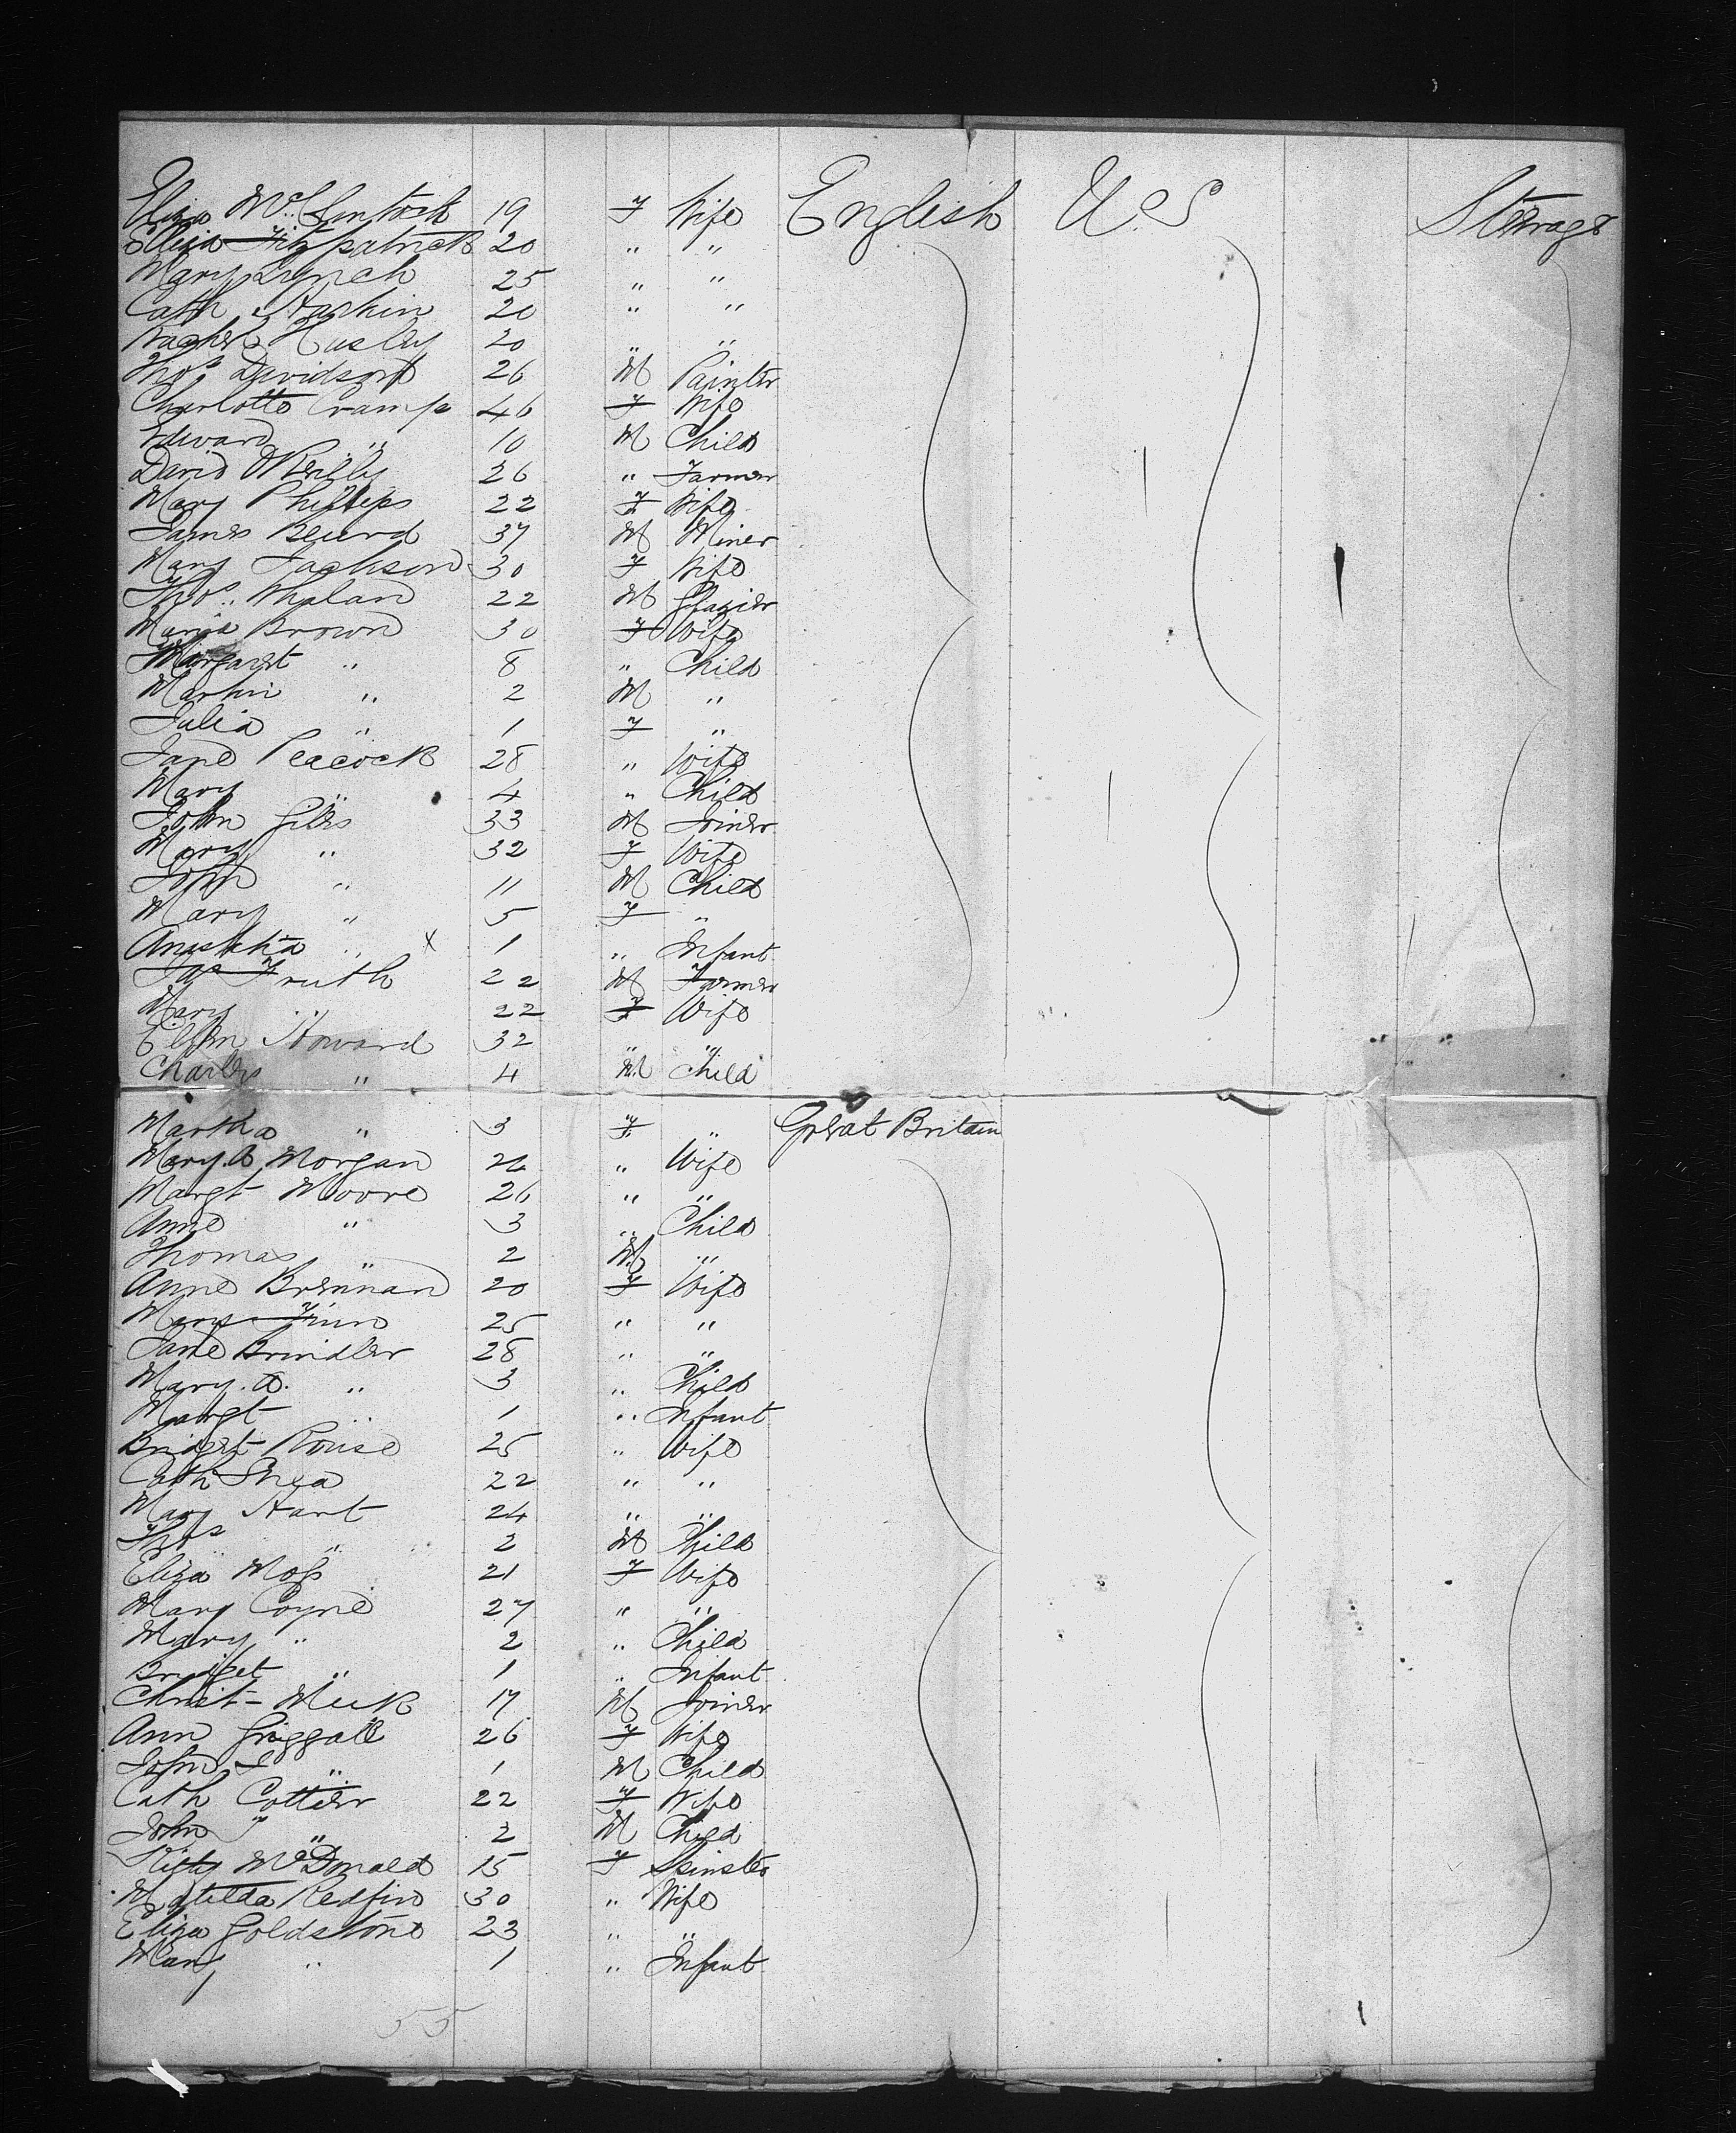 Eliza McClintock 19 F Wife English U S Steerage
Eliza Fitzpatrick 20 " "
Mary Lynch 25 " "
Cath Harkin 20 " "
Rachel Husley 20 " "
Thos Davidson 26 M Painter
Charlotte Cramp 46 F Wife
Edward " 10 M Child
David O'Reilly 26 " Farmer
Mary Phillips 22 F Wife
James Beurd 37 M Miner
Mary Jackson 30 F Wife
Thos Whalan 22 M Glazier
Maria Brown 30 F Wife
Margaret " 8 " Child
Martin " 2 M "
Julia " 1 F "
Jane Peacock 28 " Wife
Mary " 4 " Child
John Giles 33 M Joiner
Mary " 32 F Wife
John " 11 M Child
Mary " 5 F "
Anastatia " x 1 " Infant
Jas Fruth 22 M Farmer
Mary " 22 F Wife
Ellen Howard 32 " "
Charles " 4 M Child
Martha " 3 F " Great Britain
Mary A Morgan 26 " Wife
Margt Moore 26 " "
Anne " 3 " Child
Thomas " 2 M "
Anne Brennan 20 F Wife
Mary Finn 25 " "
Jane Brindler 28 " "
Mary A. " 3 " Child
Margt " 1 " Infant
Bridget Rouse 25 " Wife
Cath Shea 22 " "
Mary Hart 24 " "
Thos " 2 M Child
Eliza Moss 21 F Wife
Mary Coyne 27 " "
Mary " 2 " Child
Bridget " 1 " Infant
Christ Meek 17 M Joiner
Ann Griggall 26 F Wife
John J " 1 M Child
Cath Cottier 22 F Wife
John J " 2 M Child
Kitty McDonald 15 F Spinster
Matilda Redfin 30 " Wife
Eliza Goldstone 23 " "
Mary " 1 " Infant
55